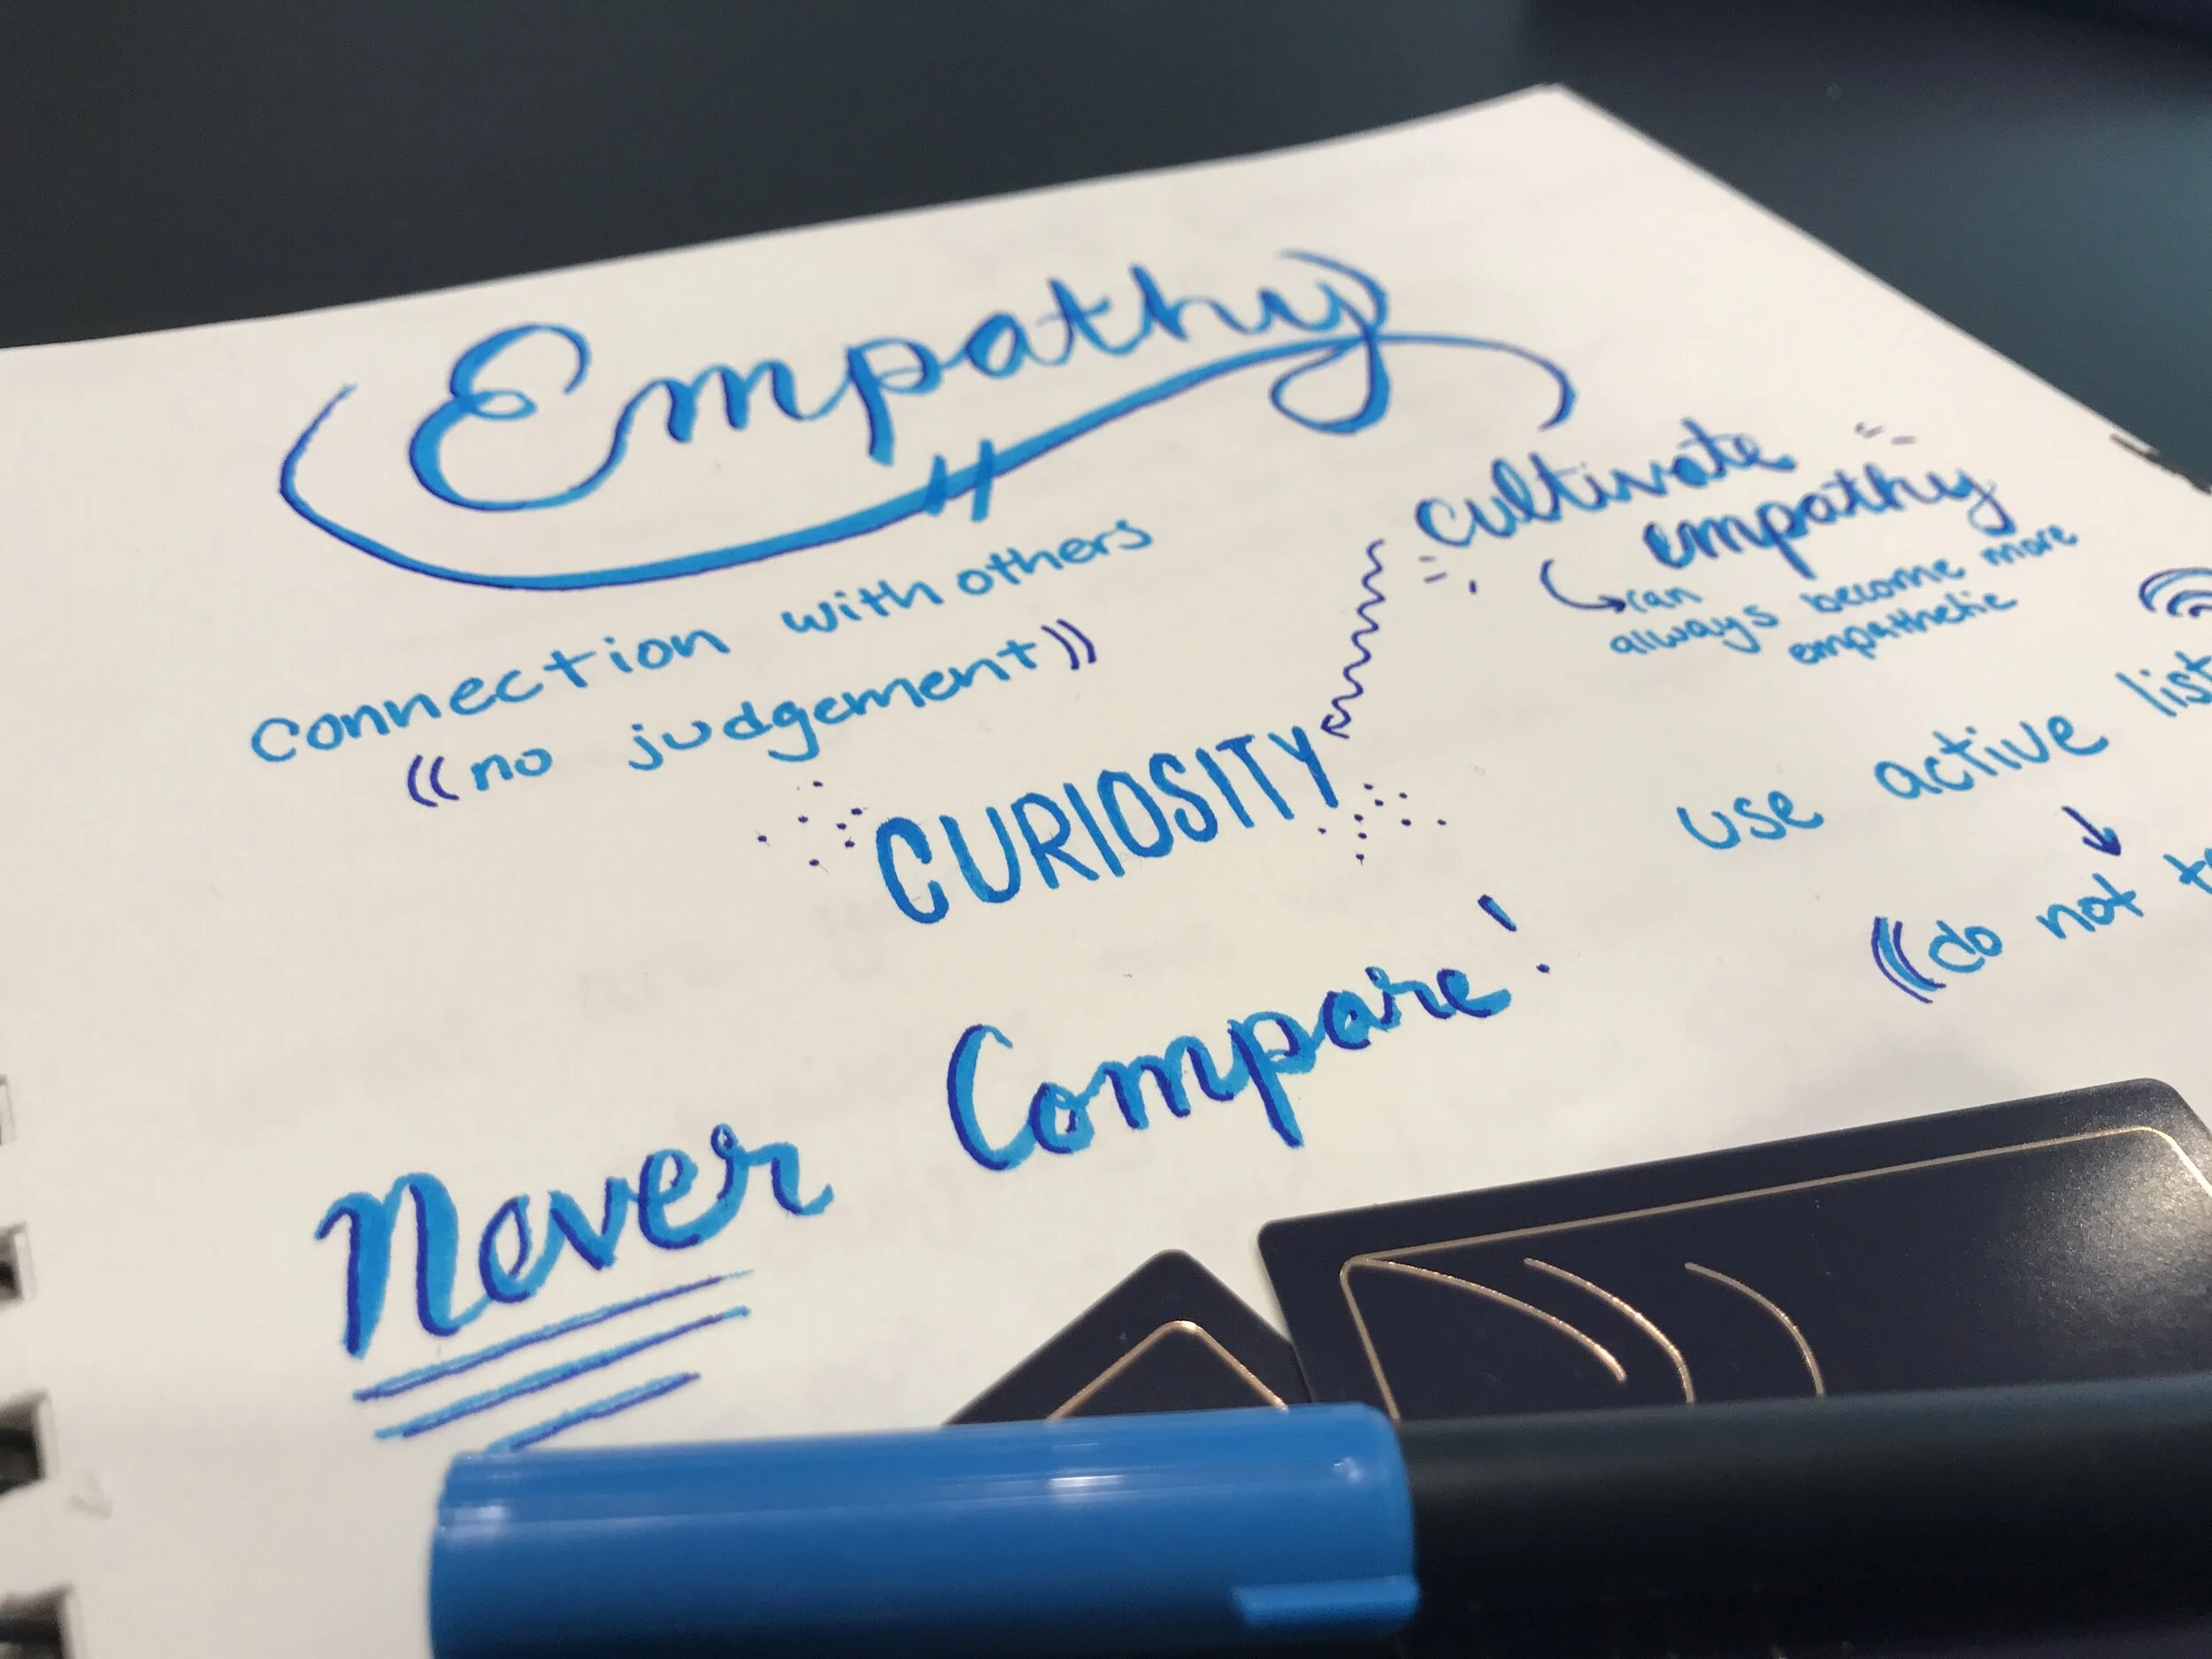 Empathy
connection with others
((no judgement))
cultivate
empathy
can
always become more
empathetic
CURIOSITY
use active
((do not
Never Compare!